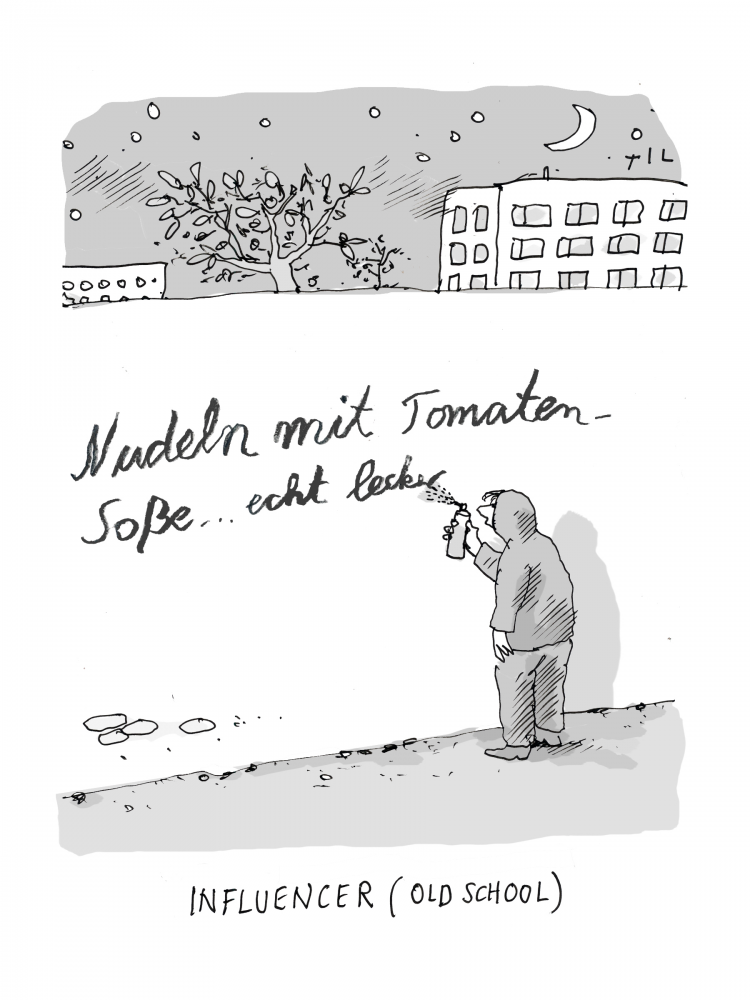 TIL
Nudeln mit Tomaten-
Soße... echt lecker
INFLUENCER (OLD SCHOOL)